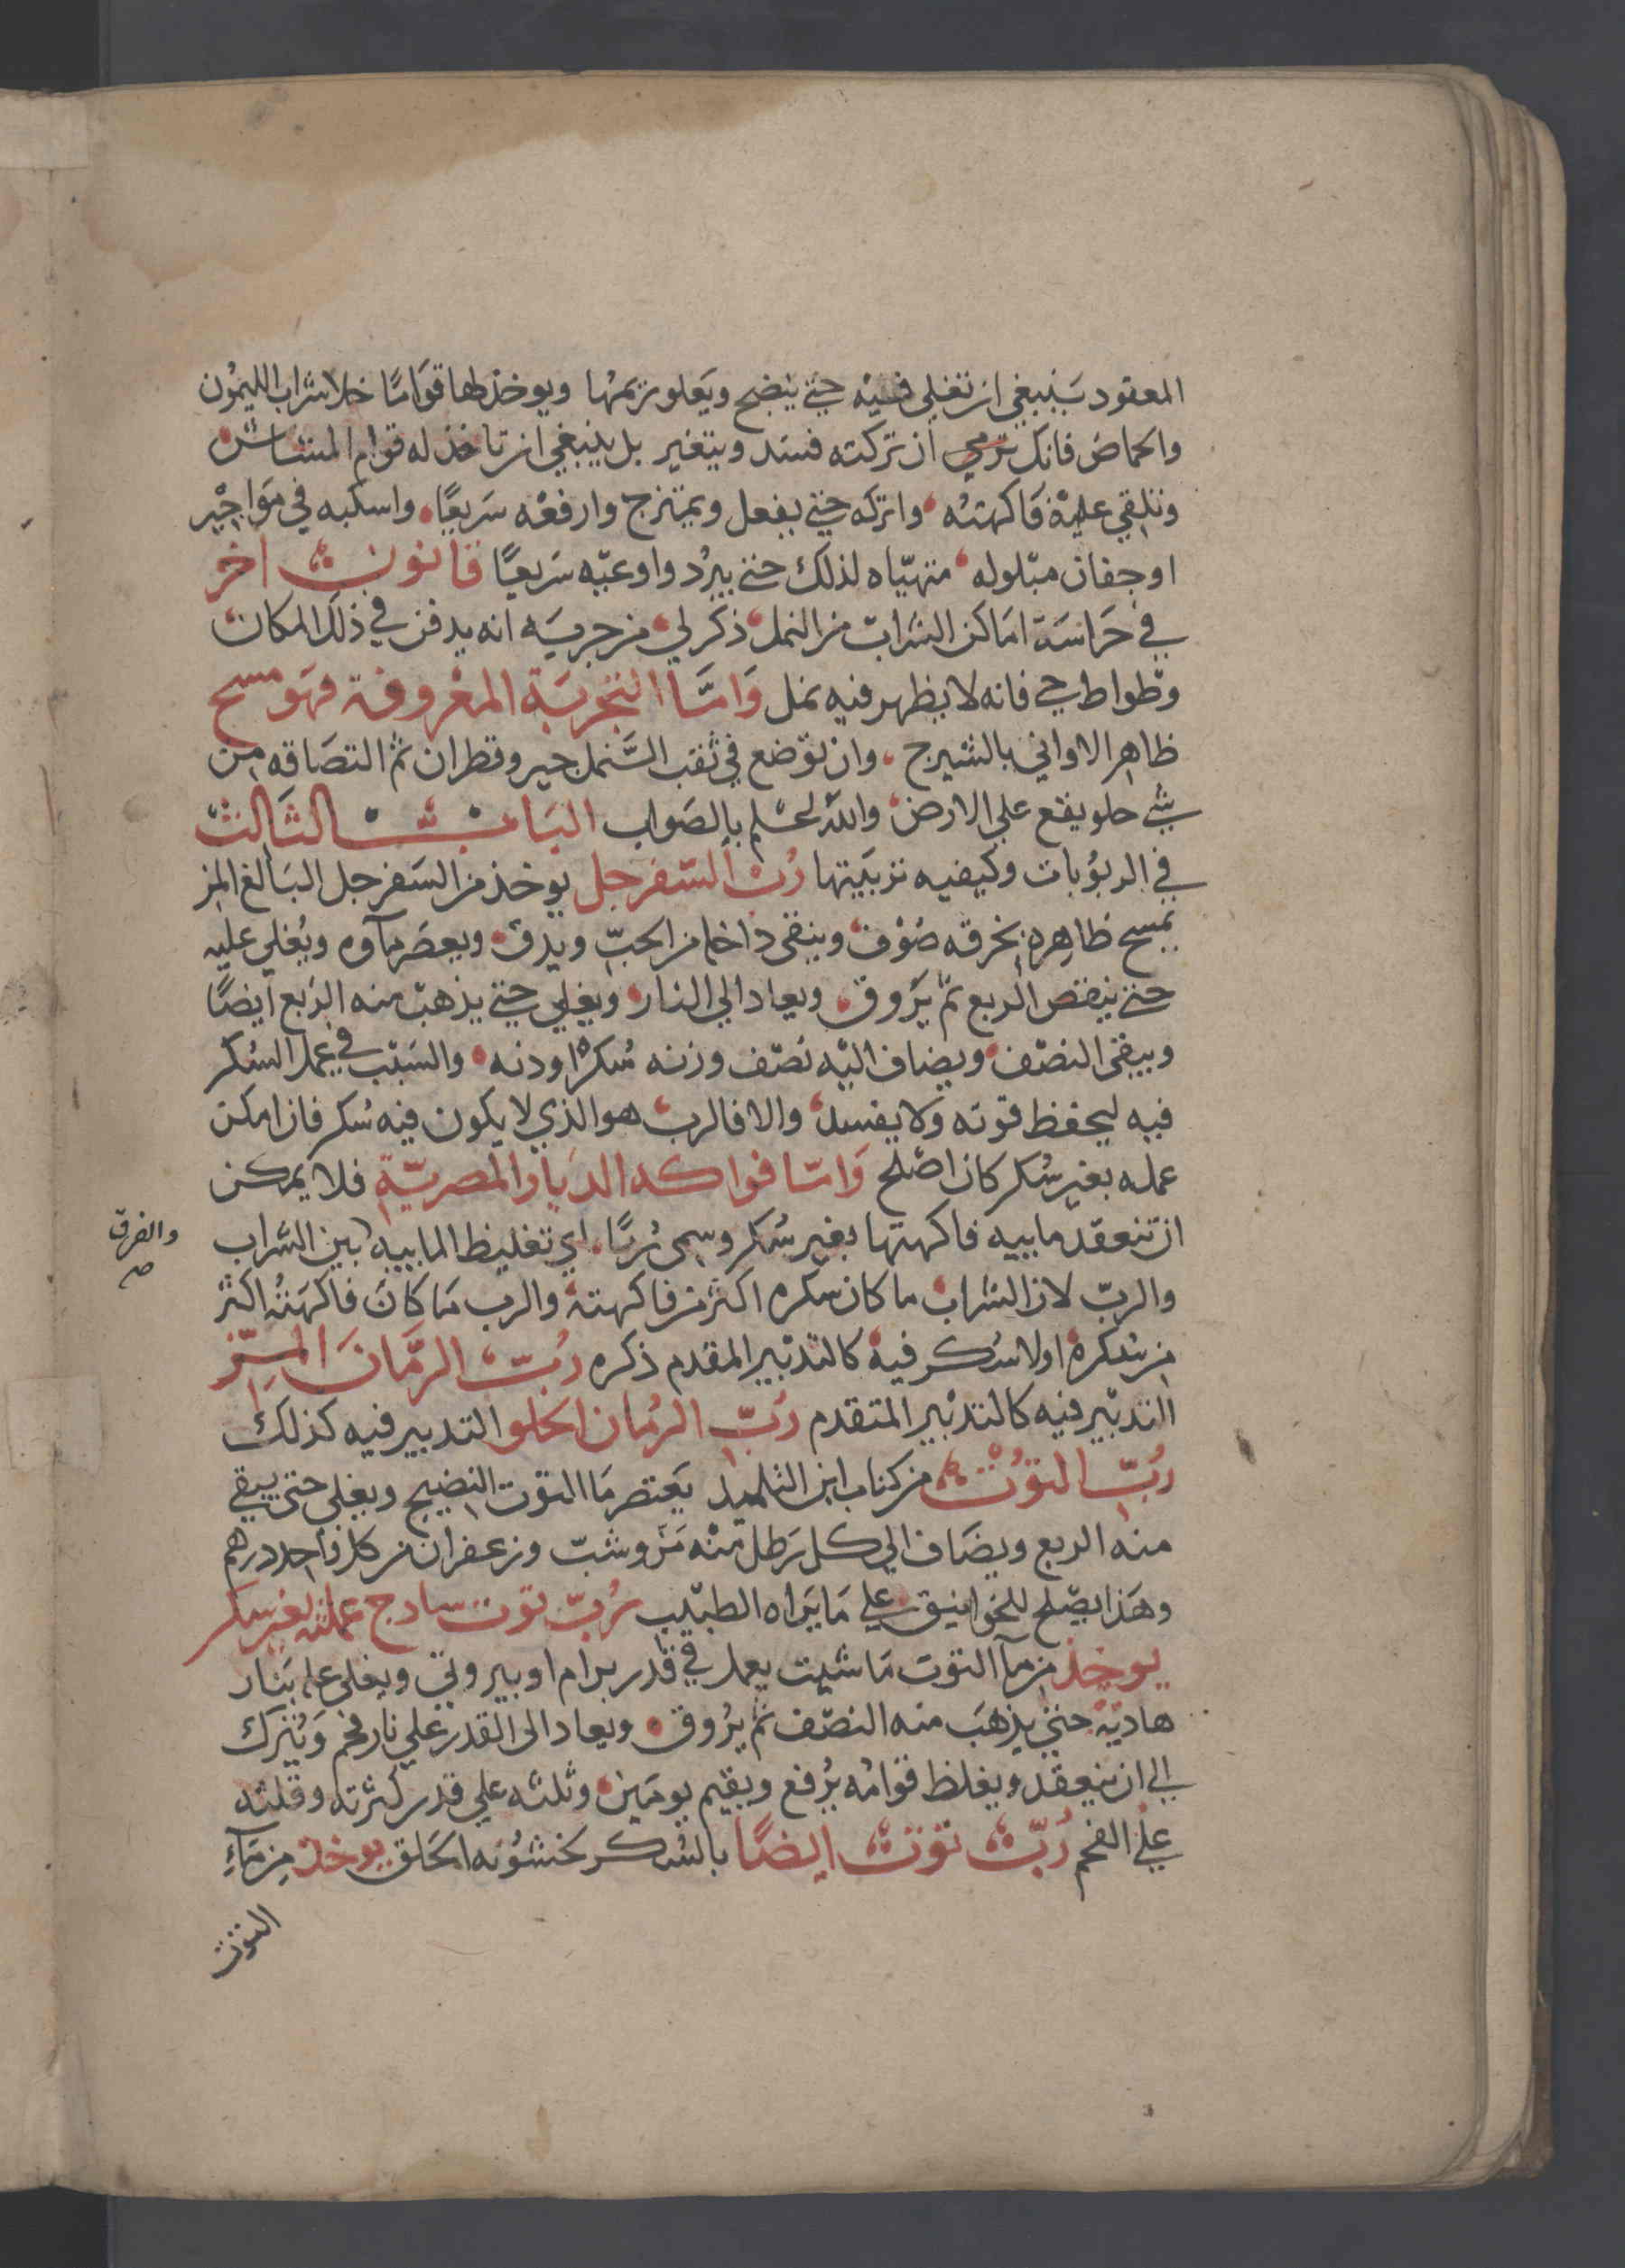 المعقود ينبغي ان تغلي فيه حتي ينضج ويعلو تريمها ويوخذ لها قواما خلا شراب الليمون
والحماض فانك ترمي ان تركته فسد ويتغير بل ينبغي ان تاخذ له قوام المشاش
وتلقي عليه فاكهته واتركه حتي يفعل ويمتزج وارفعه سريعا واسكبه في مواجير
او جفان مبلوله متهياه لذلك حتي يبرد واوعيه سريعا قانون اخر
في حراسة اماكن الشراب من النمل ذكر لي من جربه انه يدفن في ذلك المكان
وطواط حي فانه لا يظهر فيه نمل وَامَّا التجربة المعروفة فهو مسح
ظاهر الاواني بالشيرج وان توضع في ثقب النمل جير وقطران ثم التصاقه من
شي حلو يقع علي الارض والله اعلم بالصواب الباب الثالث
في الربوبات وكيفيه تربيتها رب السفرجل يوخذ من السفرجل البالغ المز
يمسح ظاهره بخرقه صوف وينقي داخله من الحبّ ويدق ويعصر مآوه ويُغلي عليه
حتي ينقص الربع ثم يَروق ويعاد الي النار ويغلي حتي يذهب منه الربع ايضًا
ويبقي النصف ويضاف اليه نصف وزنه سكرا ودنه والسبب في عمل السكر
فيه ليحفظ قوته ولا يفسد والا فالرب هو الذي لا يكون فيه سكر فان امكن
عمله بغير سُكر كان اصلح وَامّا فواكه الديار المصريّة فلا يمكن
ان تنعقد مابيه فاكهتها بغير سُكر وسمي رُبًا اي تغليظ المابيه بين الشراب
والفرق صح
والربّ لان الشراب ما كان سكره اكثر من فاكهته والرب مَا كان فاكهته اكثر
من سكره اولا سُكر فيه كالتدبير المقدم ذكره رُبّ الرمَّان المز
التدبير فيه كالتدبير المتقدم رُبّ الرُمان الحلو التدبير فيه كذلك
رُبّ التوت من كتاب ابن التلميد يعتصر مَا التوت النضيج ويغلي حتى يبقي
منه الربع ويضاف الي كل رَطل منه مَرّ وشبّ وزعفران من كل واحد درهم
وهَذا يصلح للخوانيق علي مَا يَراه الطبيب رُبّ توت سادج عملته بغير سكر
يوخذ من مآ التوت مَا شيت يعمل في قدر برام او بيروتي ويغلي عليه بنار
هاديه حتي يذهبَ منه النصف ثم يرُوق ويعاد الى القدر علي نار فحم وَيُترك
الي ان ينعقد ويغلظ قوامه يُرفع ويقيم يومَين وثلثه علي قدر كثرته وقلته
علي الفحم رُبّ توت ايضًا بالسُكر لخشُونه الحَلق يوخذ مِن مَآءِ
التوت